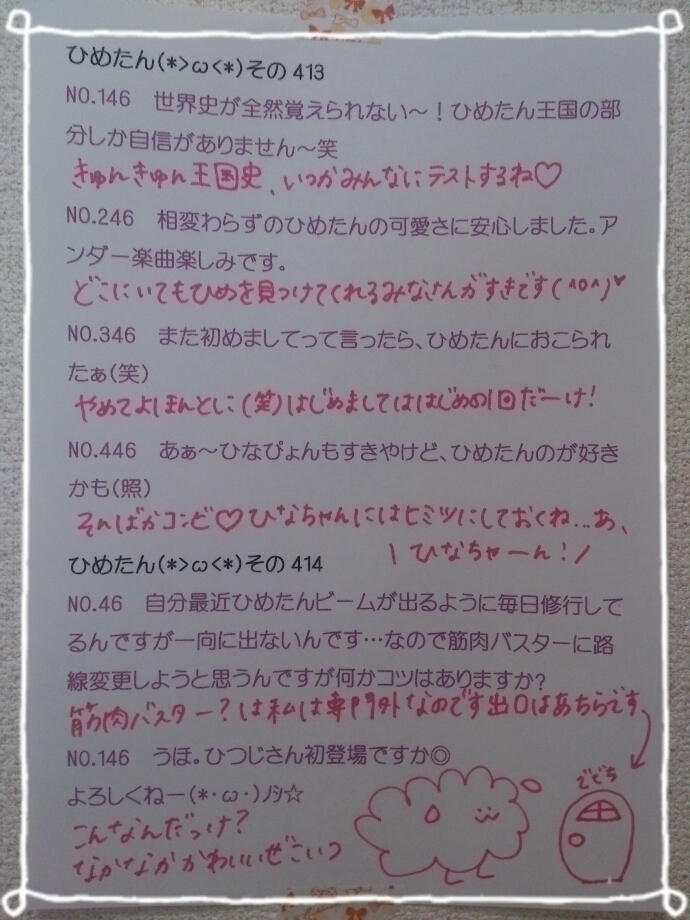 ひめたん(*>ω<*)その413
NO.146 世界史が全然覚えられない〜！ひめたん王国の部
分しか自信がありません〜笑
きゅんきゅん王国史、いつかみんなにテストするね♡
NO.246 相変わらずのひめたんの可愛さに安心しました。ア
ンダー楽曲楽しみです。
どこにいてもひめを見つけてくれるみなさんがすきです(^o^)♥
NO.346 また初めましてって言ったら、ひめたんにおこられ
たぁ(笑)
やめてよほんとに(笑)はじめましてははじめの1回だーけ！
NO.446 あぁ〜ひなぴょんもすきやけど、ひめたんのが好き
かも(照)
そんばかコンビ♡ひなちゃんにはヒミツにしておくね…あ、
\ひなちゃーん！/
ひめたん(*>ω<*)その414
NO.46 自分最近ひめたんビームが出るように毎日修行して
るんですが一向に出ないんです…なので筋肉バスターに路
線変更しようと思うんですが何かコツはありますか?
筋肉バスター？は私は専門外なのです出口はあちらです
NO.146 うほ。ひつじさん初登場ですか◎
よろしくねー(*･ω･)ﾉｼ☆
でぐち
こんなんだっけ？
なかなかかわいいぜこいつ